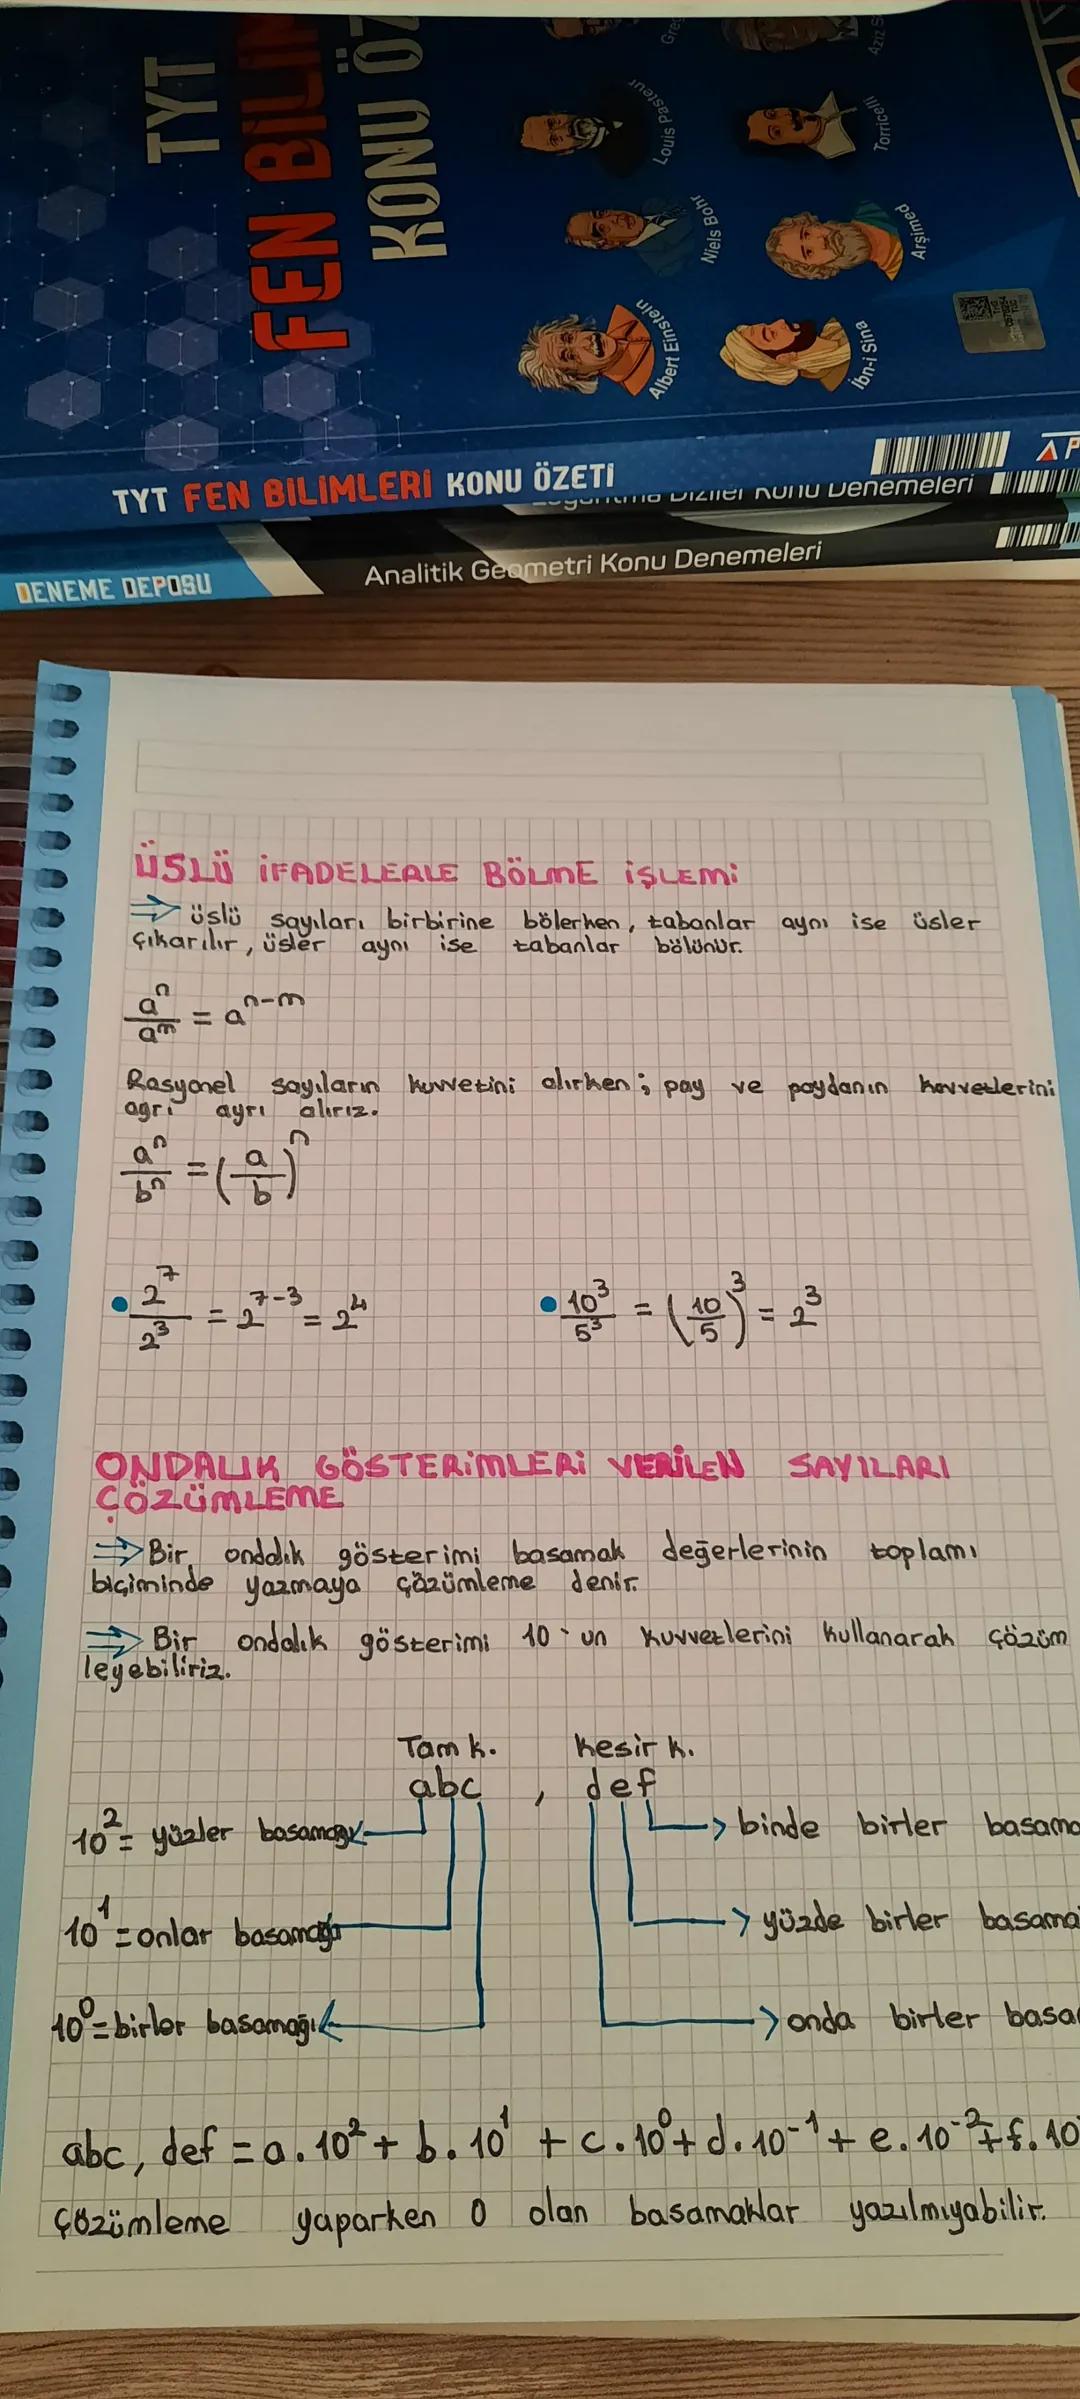 TYT
FEN BİLİM
KONU ÖZ
Louis Pasteur
Torricelli
Niels Bohr
Arşimed
Albert Einstein
İbn-i Sina
TYT FEN BİLİMLERİ KONU ÖZETİ
Diziler Konu Denemeleri
DENEME DEPOSU
Analitik Geometri Konu Denemeleri
ÜSLÜ İFADELERLE BÖLME İŞLEMİ
⇒ üslü sayıları birbirine bölerken, tabanlar aynı ise üsler
çıkarılır, üsler aynı ise tabanlar bölünür.
a^n / a^m = a^(n-m)
Rasyonel sayıların kuvvetini alırken; pay ve paydanın kuvvetlerini
agrı ayrı alırız.
a^n / b^n = (a/b)^n
• 2^7 / 2^3 = 2^(7-3) = 2^4
• 10^3 / 5^3 = (10/5)^3 = 2^3
ONDALIK GÖSTERİMLERİ VERİLEN SAYILARI
ÇÖZÜMLEME
⇒ Bir ondalık gösterimi basamak değerlerinin toplamı
biçiminde yazmaya çözümleme denir.
⇒ Bir ondalık gösterimi 10'un kuvvetlerini kullanarak çözüm
leyebiliriz.
Tam k. Kesir k.
abc , def
10^2 = yüzler basamağı
binde birler basama
10^1 = onlar basamağı
yüzde birler basama
10^0 = birler basamağı
onda birler basa
abc, def = a.10^2 + b.10^1 + c.10^0 + d.10^-1 + e.10^-2 + f.10
çözümleme yaparken 0 olan basamaklar yazılmıyabilir.